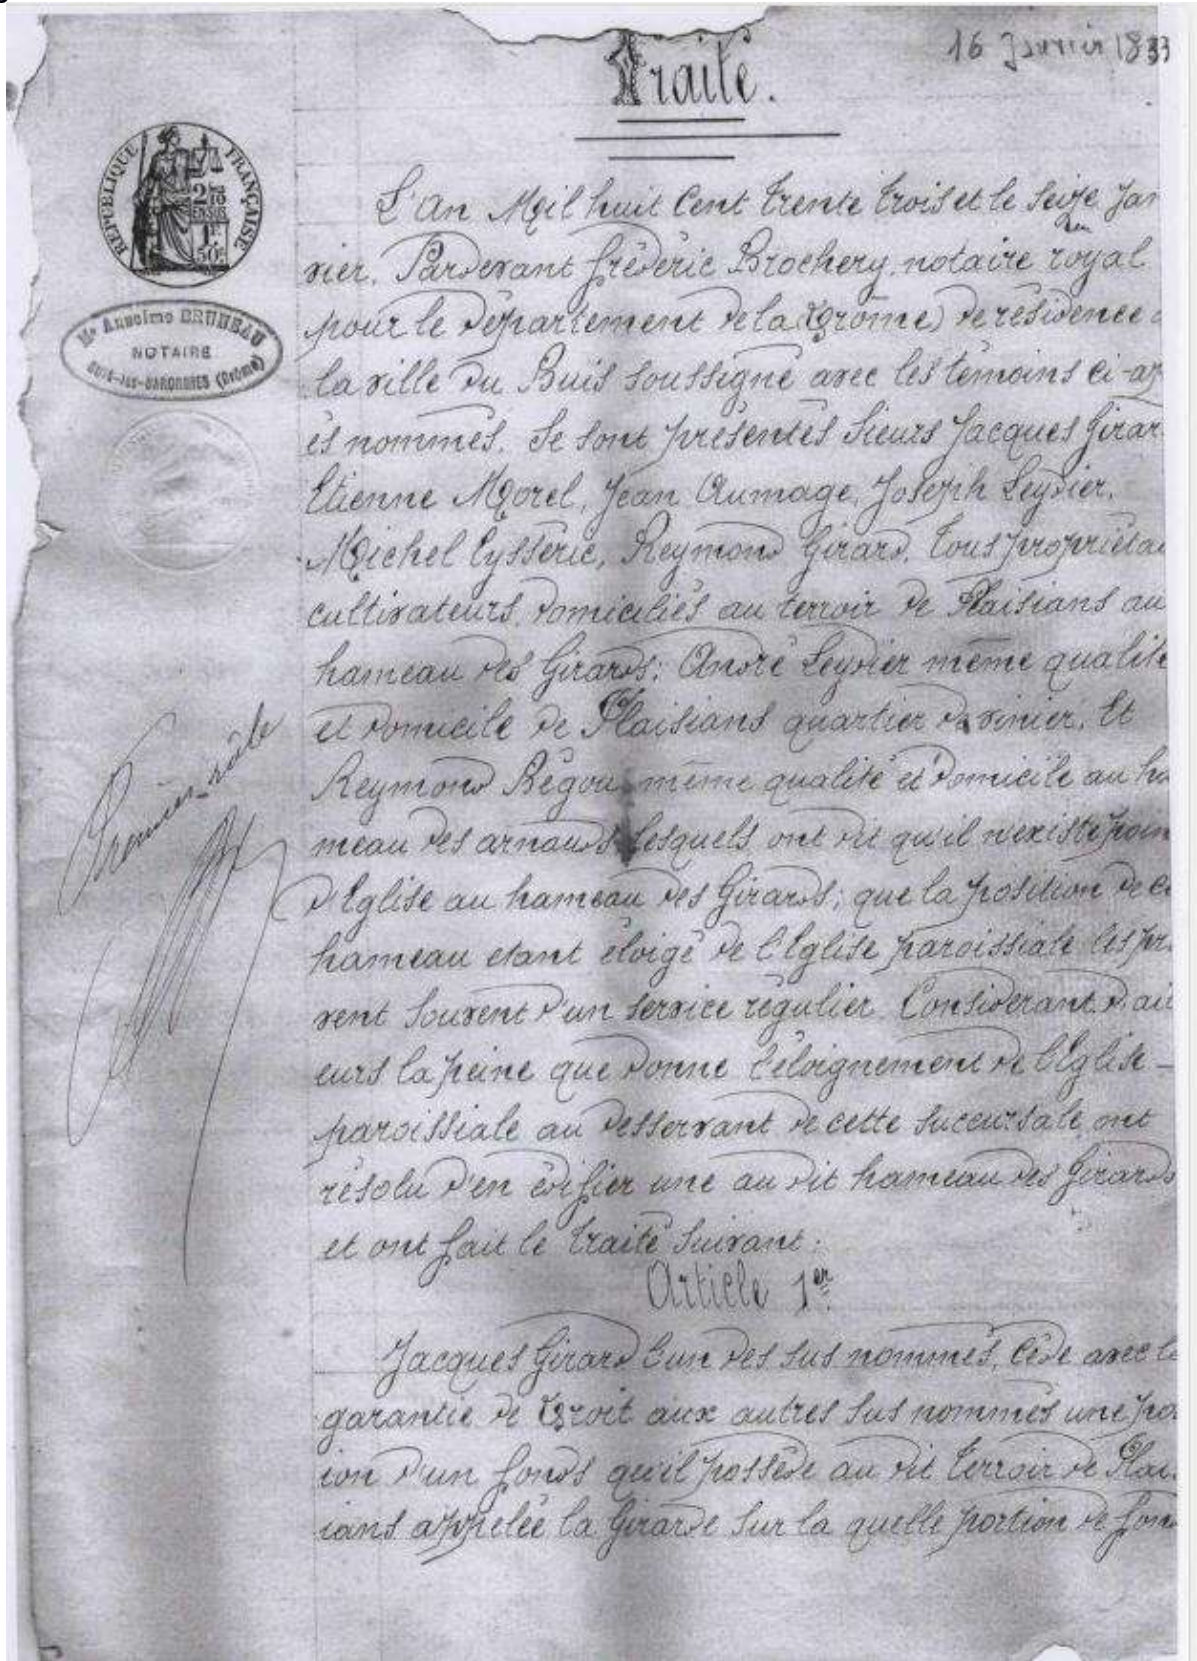 16 Janvier 1833
Traité.
RÉPUBLIQUE FRANÇAISE
2/10
EN SUS
1F.
50c.
Me Anselme BRUNEAU
NOTAIRE
BUIS-les-BARONNIES (Drôme)
L'an Mil huit Cent trente trois et le Seize Jan
vier. Pardevant fréderic Brochery, notaire royal
pour le département de la (Drôme) de résidence
la ville du Buis soussigné avec les témoins ci-ap
ès nommés. Se sont présentés Sieurs Jacques Girar
Etienne Morel, Jean Aumage, Joseph Leydier,
Michel Eysséric, Reymond Girard, tous propriétai
cultivateurs domiciliés au terroir de Plaisians au
hameau des Girards; André Leydier même qualité
et domicile de Plaisians quartier du vinier. Et
Reymond Bégou même qualité et domicile au ha
meau des arnauds lesquels ont dit qu'il n'existe poin
d'Eglise au hameau des Girards; que la position de ce
hameau etant éloigé de l'Eglise paroissiale les pr
vent souvent d'un service régulier. Considerant d'ail
eurs la peine que donne l'éloignement de l'Eglise -
paroissiale au desservant de cette succursale ont
résolu d'en édifier une au dit hameau des Girards
et ont fait le traité suivant:
Article 1er
Jacques Girard l'un des sus nommés, Cède avec la
garantie de Droit aux autres sus nommés une po
ion d'un fonds qu'il possède au dit terroir de Plai
ians appelée la Girarde sur la quelle portion de fon
Premier rôle